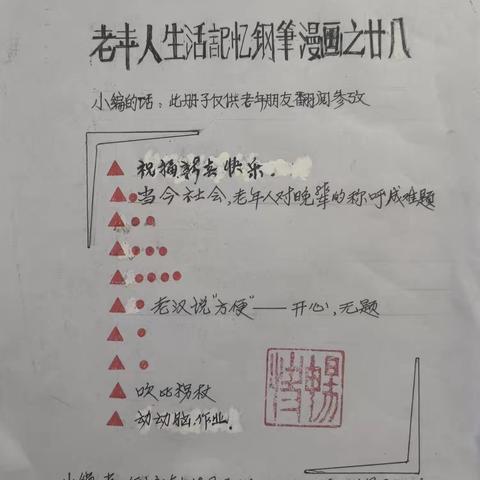 老年人生活記忆钢筆漫画之廿八
小编的话：此册子仅供老年朋友翻阅参攷
祝福新春快乐.
当今社会,老年人对晚辈的称呼成难题
老汉说"方便"——开心,无题
吹比拐杖
动动脑.作业.